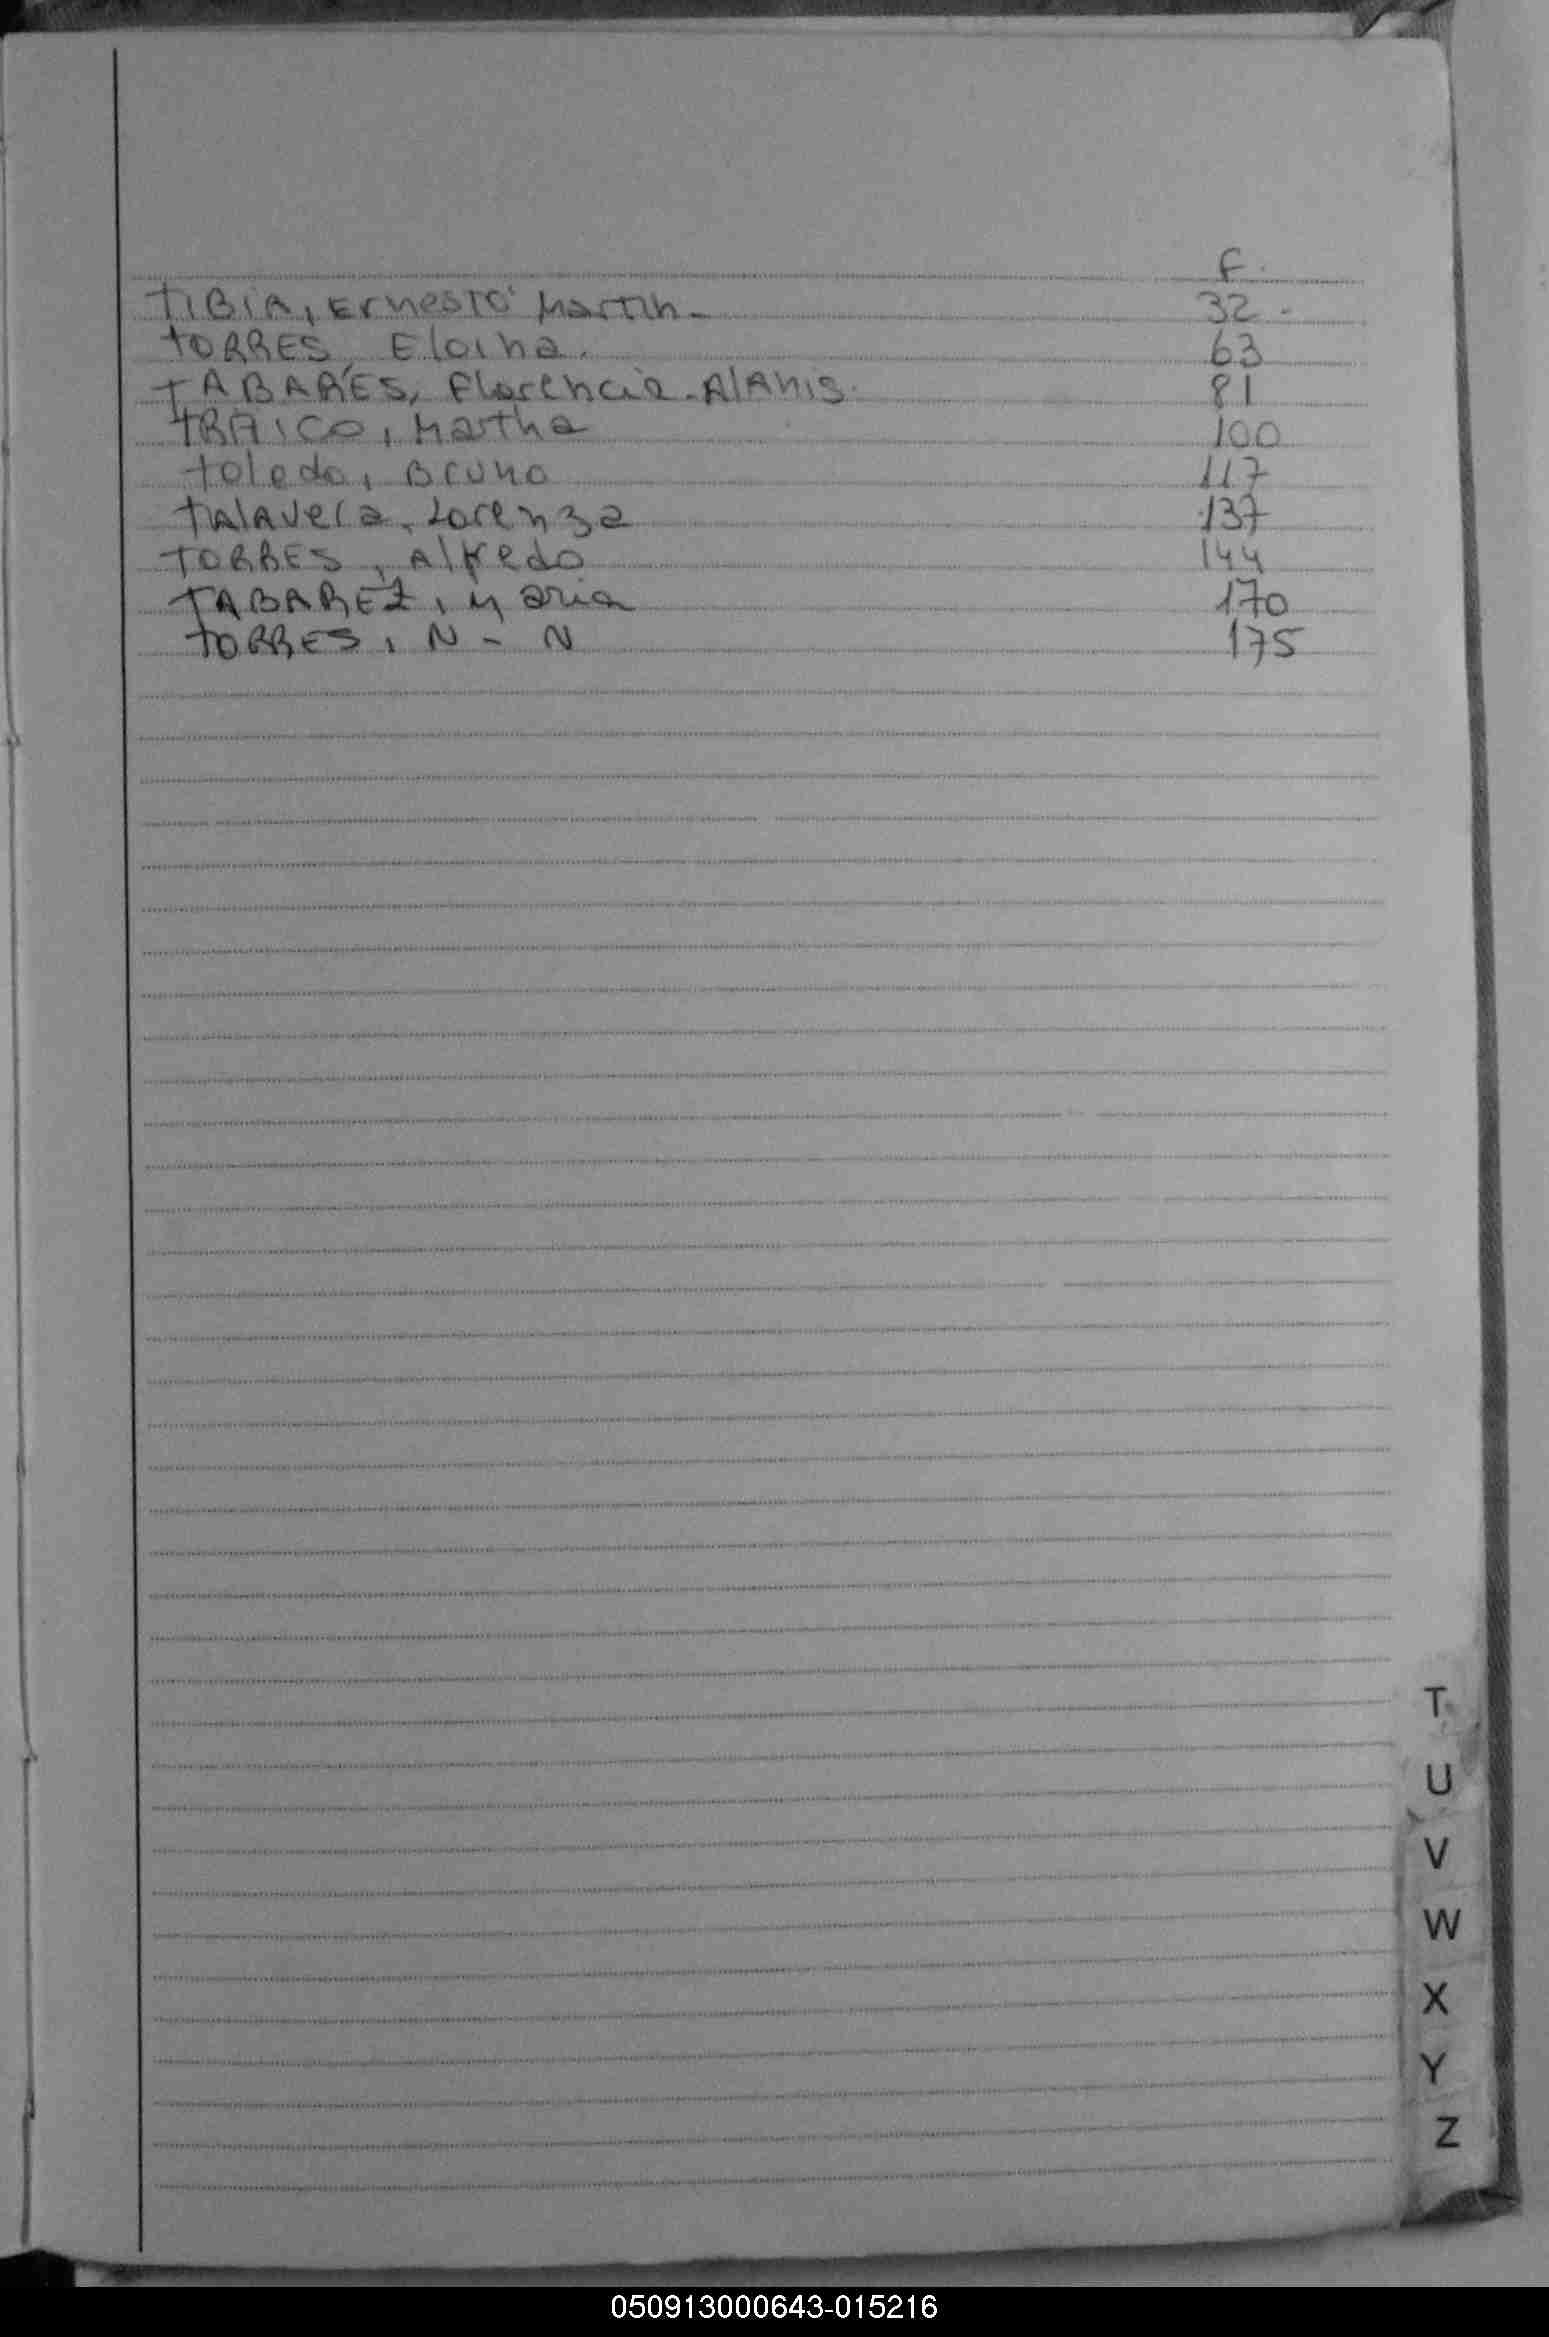 F.
TIBIA, Ernesto Martin. 32.
TORRES, Eloina. 63
TABARES, Florencia. Alanis. 81
TRAICO, Martha 100
Toledo, Bruno 117
Talavera, Lorenza 137
TORRES, Alfredo 144
TABAREZ, Maria 170
TORRES, N - N 175
T
U
V
W
X
Y
Z
050913000643-015216